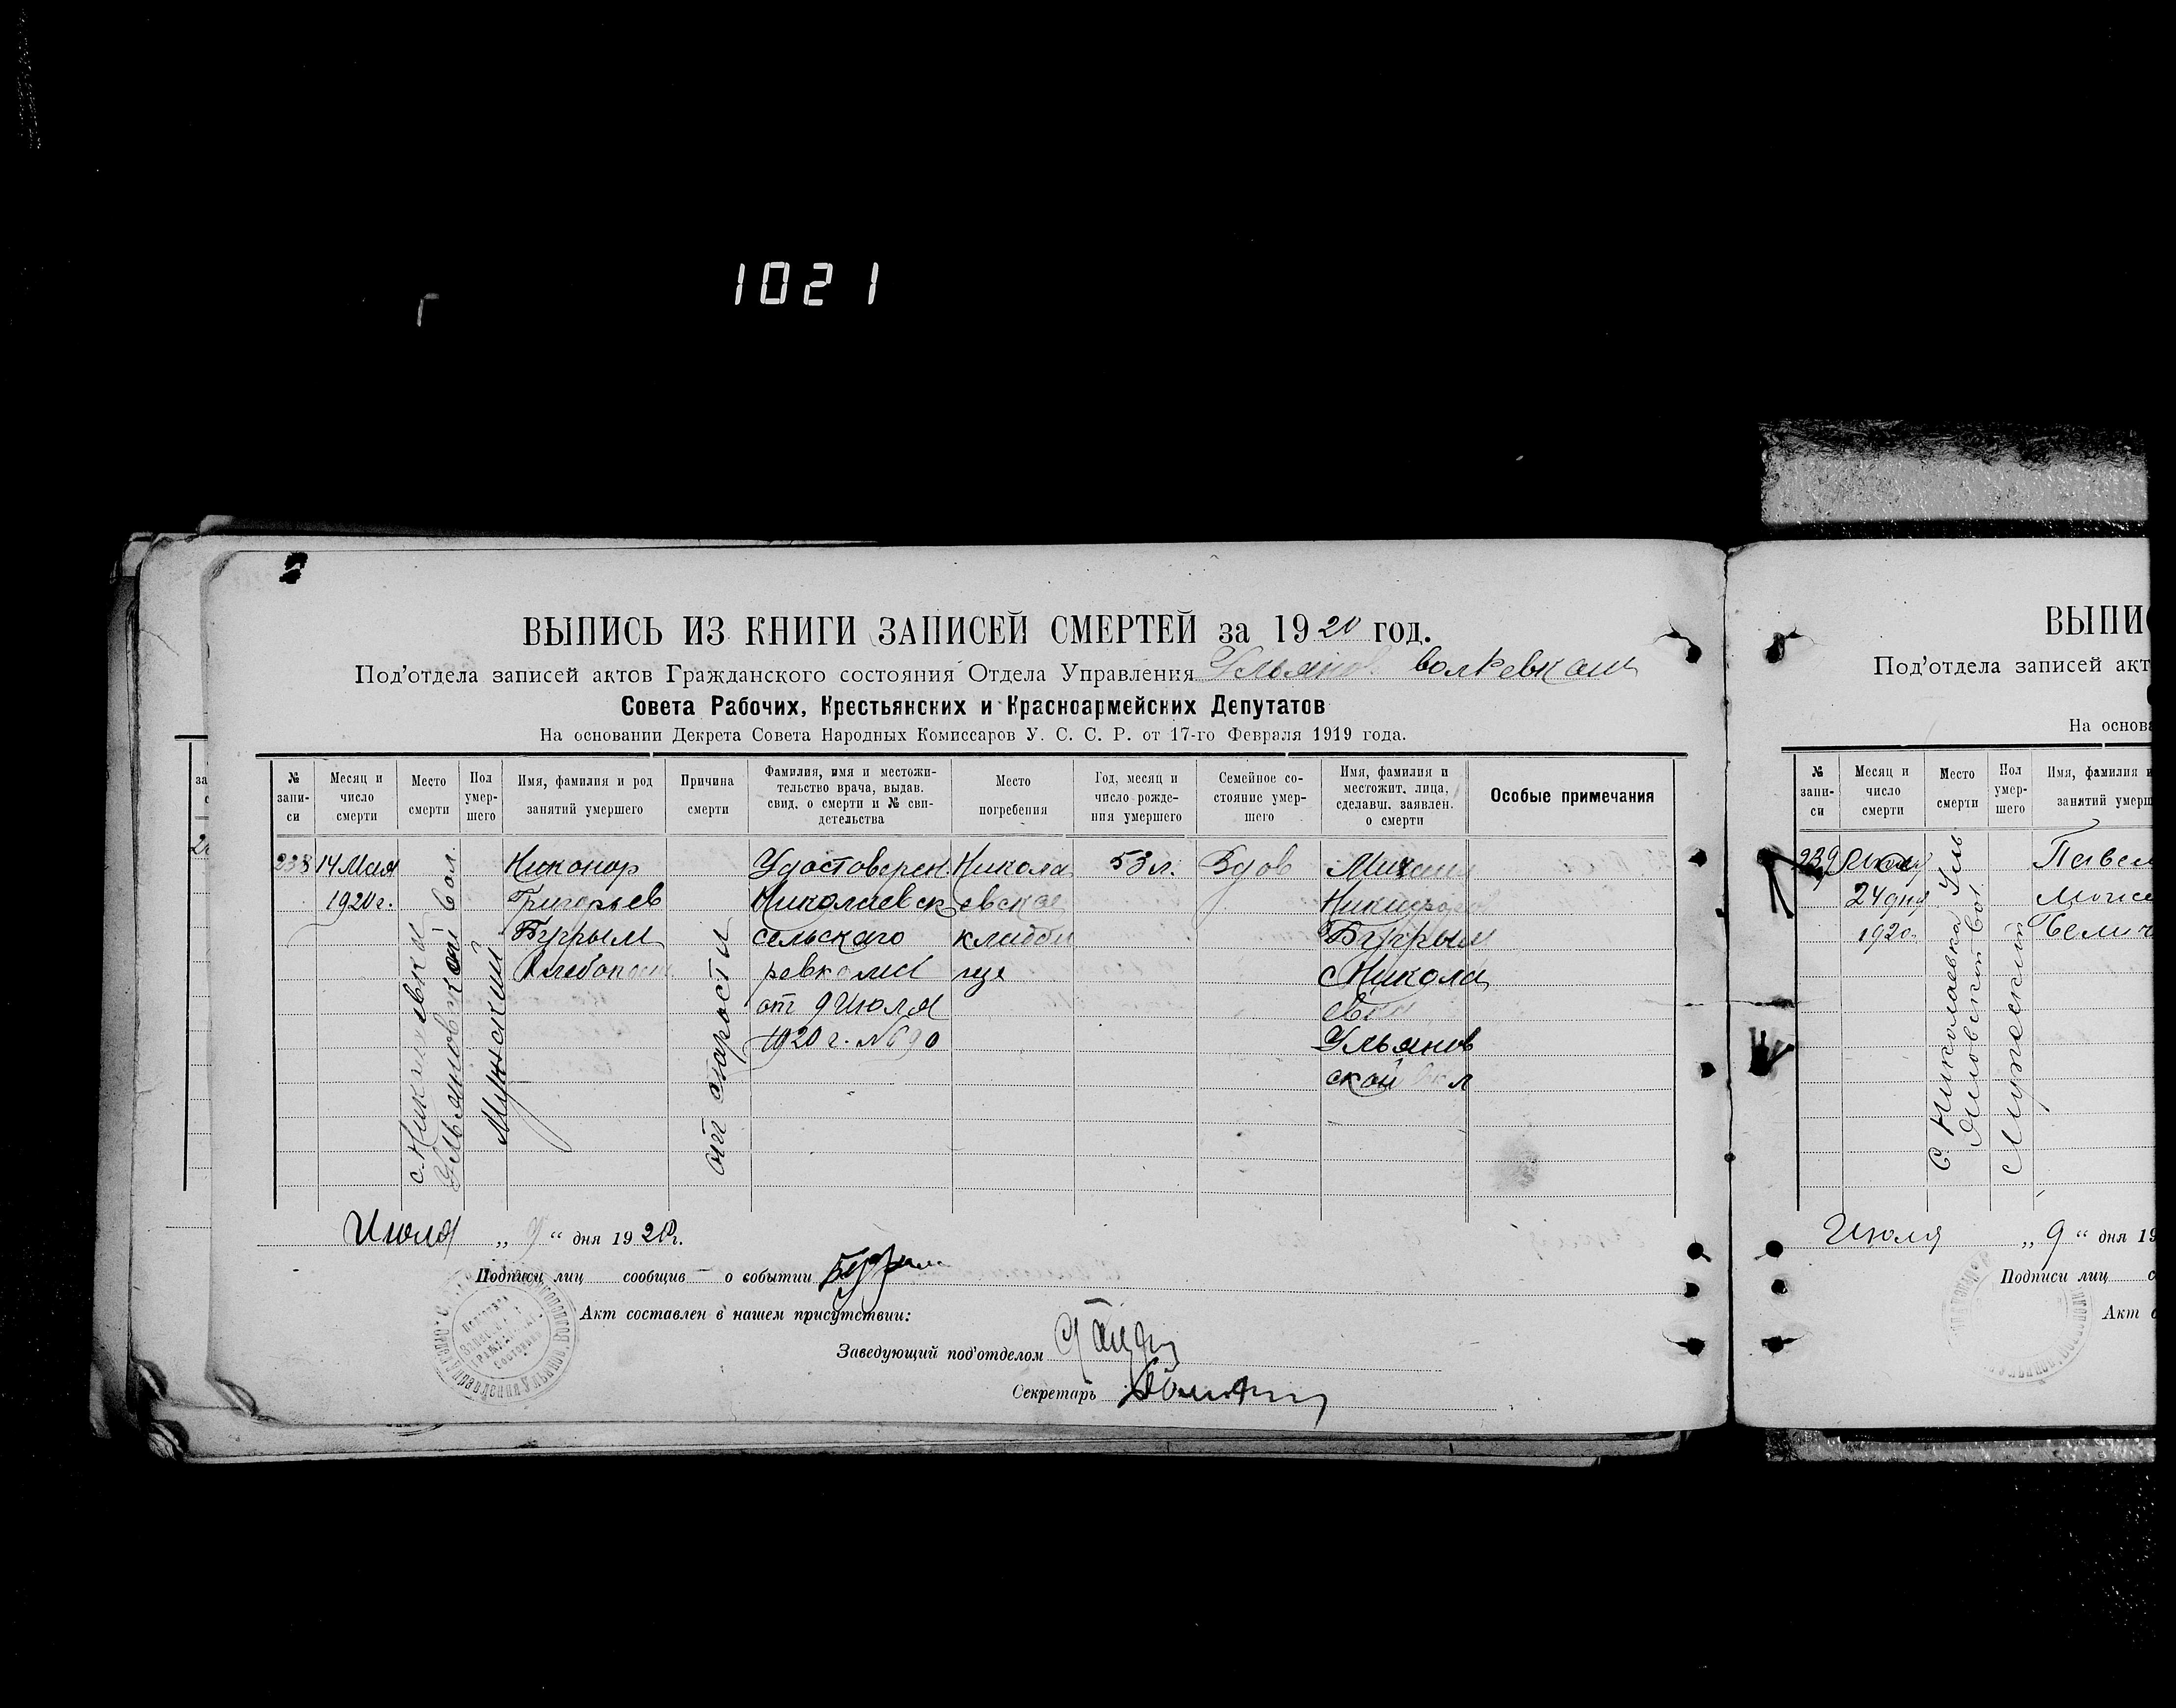 1021
ВЫПИСЬ ИЗ КНИГИ ЗАПИСЕЙ СМЕРТЕЙ за 1920 год.
Под'отдела записей актов Гражданского состояния Отдела Управления Ульянов. волревком
Совета Рабочих, Крестьянских и Красноармейских Депутатов
На основании Декрета Совета Народных Комиссаров У. С. С. Р. от 17-го Февраля 1919 года.
№ запи-
си
Месяц и
число
смерти
Место
смерти
Пол
умер-
шего
Имя, фамилия и род
занятий умершего
Причина
смерти
Фамилия, имя и местожи-
тельство врача, выдав.
свид. о смерти и № сви-
детельства
Место
погребения
Год, месяц и
число рожде-
ния умершего
Семейное со-
стояние умер-
шего
Имя, фамилия и
местожит. лица,
сделавш. заявлен.
о смерти
Особые примечания
238
14 Мая
1920 г.
с. Николаевка
Ульяновской вол.
Мужский
Никонор
Григорьев
Бугрым
Хлебопаш
от старости
Удостоверен.
Николаевск
сельскаго
ревкома
от 9 Июля
1920 г. № 690
Никола
евское
кладби
ще
53 л.
Вдов
Никифоров
Бугрым
с Никола
евки
Ульянов
ской вол
Июля „ 9 “ дня 1920 г.
Подписи лиц сообщив — о событии Бугрым
Акт составлен в нашем присутствии:
Заведующий под'отделом
Секретарь
за
2
ВЫПИС
Под'отдела записей акт
На основа
№
запи-
си
Месяц и
число
смерти
Место
смерти
Пол
умер-
шего
Имя, фамилия и
занятий умерш
239
24 дня
1920
С. Николаевка Уль
яновской вол
Мужеский
Павел
Моисе
Июля „ 9 “ дня 19
Подписи лиц с
Акт с